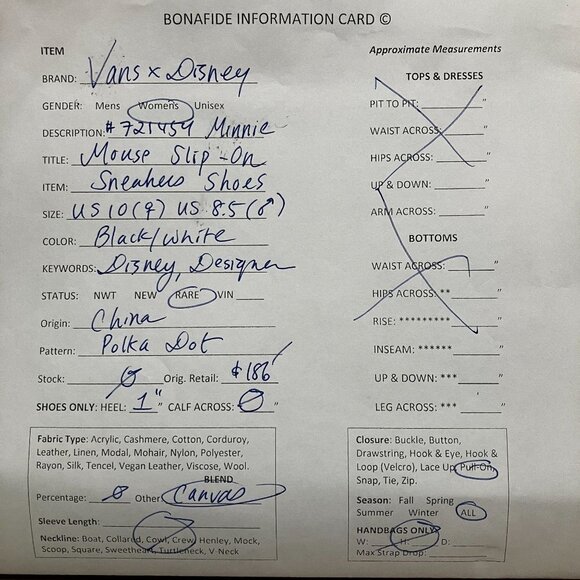 BONAFIDE INFORMATION CARD ©
ITEM
BRAND: Vans x Disney
GENDER: Mens Womens Unisex
DESCRIPTION: #721454 Minnie
TITLE: Mouse Slip-On
ITEM: Sneakers Shoes
SIZE: US 10 (♀) US 8.5 (♂)
COLOR: Black/white
KEYWORDS: Disney, Designer
STATUS: NWT NEW RARE VIN
Origin: China
Pattern: Polka Dot
Stock: Ø Orig. Retail: $186
SHOES ONLY: HEEL: 1" " CALF ACROSS: Ø "
Fabric Type: Acrylic, Cashmere, Cotton, Corduroy,
Leather, Linen, Modal, Mohair, Nylon, Polyester,
Rayon, Silk, Tencel, Vegan Leather, Viscose, Wool.
BLEND
Percentage: Ø Other Canvas
Sleeve Length:
Neckline: Boat, Collared, Cowl, Crew, Henley, Mock,
Scoop, Square, Sweetheart, Turtleneck, V-Neck
Approximate Measurements
TOPS & DRESSES
PIT TO PIT: "
WAIST ACROSS: "
HIPS ACROSS: "
UP & DOWN: "
ARM ACROSS: "
BOTTOMS
WAIST ACROSS: "
HIPS ACROSS: ** "
RISE: ********* "
INSEAM: ****** "
UP & DOWN: *** "
LEG ACROSS: *** "
Closure: Buckle, Button,
Drawstring, Hook & Eye, Hook &
Loop (Velcro), Lace Up, Pull-On,
Snap, Tie, Zip.
Season: Fall Spring
Summer Winter ALL
HANDBAGS ONLY:
W: H: D:
Max Strap Drop: